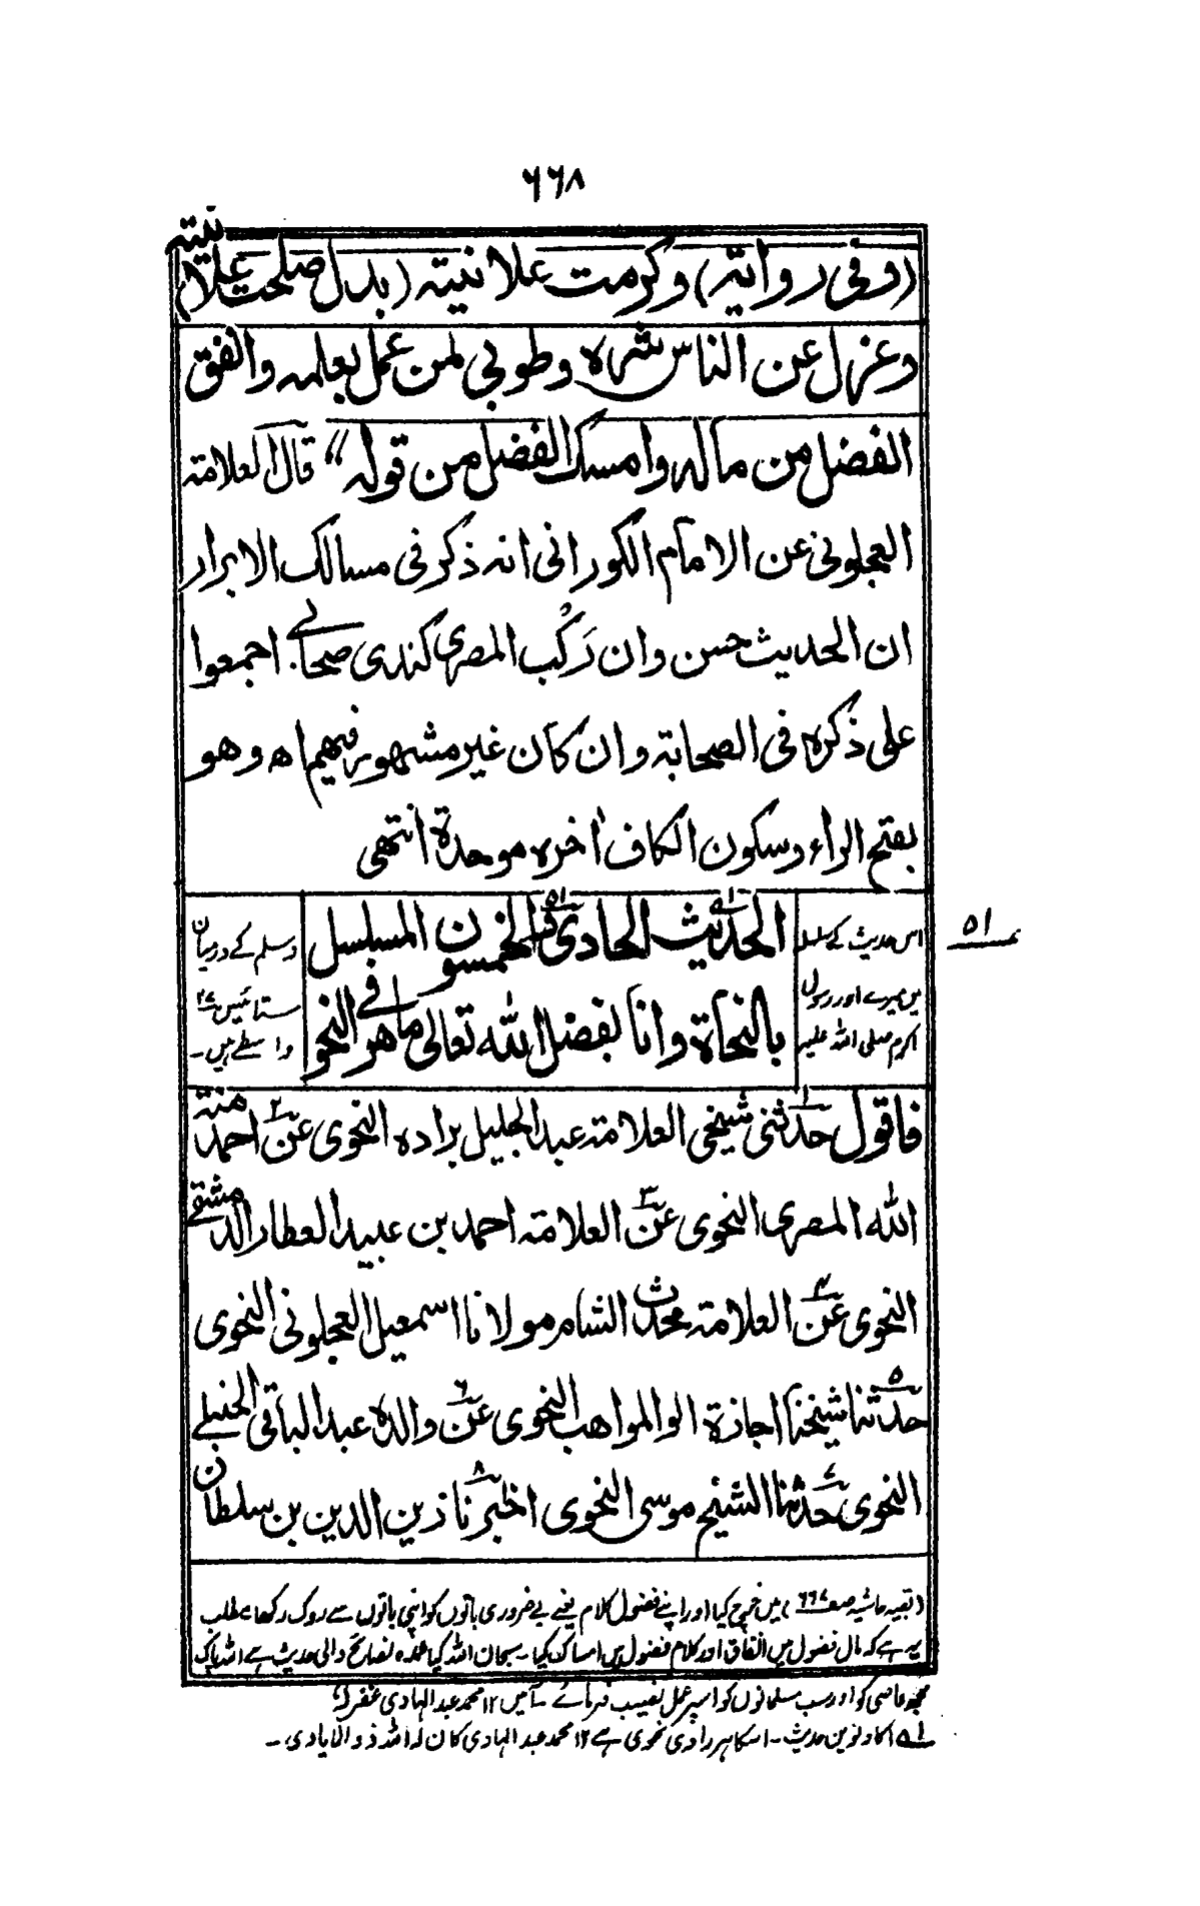 ٦٦٨
(وفی روایتہ) وکرمت علانیتہ (بدل صلحت علانیتہ)
وعزل عن الناس شرہ وطوبی لمن عمل بعلمہ وانفق
الفضل من مالہ وامسک الفضل من قولہ" قال العلامتہ
العجلونی عن الامام الکورانی انہ ذکر فی مسالک الابرار
ان الحدیث حسن وان رَکْب المصری کندی صحابی اجمعوا
علی ذکرہ فی الصحابۃ وان کان غیر مشھور فیھم اھ وھو
بفتح الراء وسکون الکاف اٰخرہ موحدۃ انتھی
الحدیث الحادی والخمسون المسلسل
بالنحاۃ وانا بفضل اللہ تعالی ماھر فی النحو
اس حدیث کے سلسلہ
میں میرے اور رسول
اکرم صلی اللہ علیہ
وسلم کے درمیان
ستائیس ۲۷
واسطے ہیں۔
۵۱
فاقول حدثنی شیخی العلامتہ عبدالجلیل برادہ النحوی عن احمد منتہ
اللہ المصری النحوی عن العلامتہ احمد بن عبید العطار الدمشقی
النحوی عن العلامتہ محدث الشام مولانا اسمعیل العجلونی النحوی
حدثنا شیخنا اجازۃ ابو المواھب النحوی عن والدہ عبدالباقی الحنبلے
النحوی حدثنا الشیخ موسی النحوی اخبرنا زین الدین بن سلطان
(بقیہ حاشیہ صفحہ ۶۶۷) میں خرچ کیا اور اپنے فضول کلام یعنے بے ضروری باتوں کو اپنی باتوں سے روک رکھا، مطلب
یہ ہے کہ مال فضول میں انفاق اور کلام فضول میں امساک کیا۔ سبحان اللہ کیا عمدہ نصائح والی حدیث ہے اللہ پاک
مجھ عاصی کو اور سب مسلمانوں کو اسپر عمل نصیب فرمائے۔ آمین ۱۲ محمد عبدالہادی غفرلہ
۵۱ اکاونویں حدیث۔ اسکا ہر راوی نحوی ہے ۱۲ محمد عبدالہادی کان لہ اللہ ذوالایادی۔